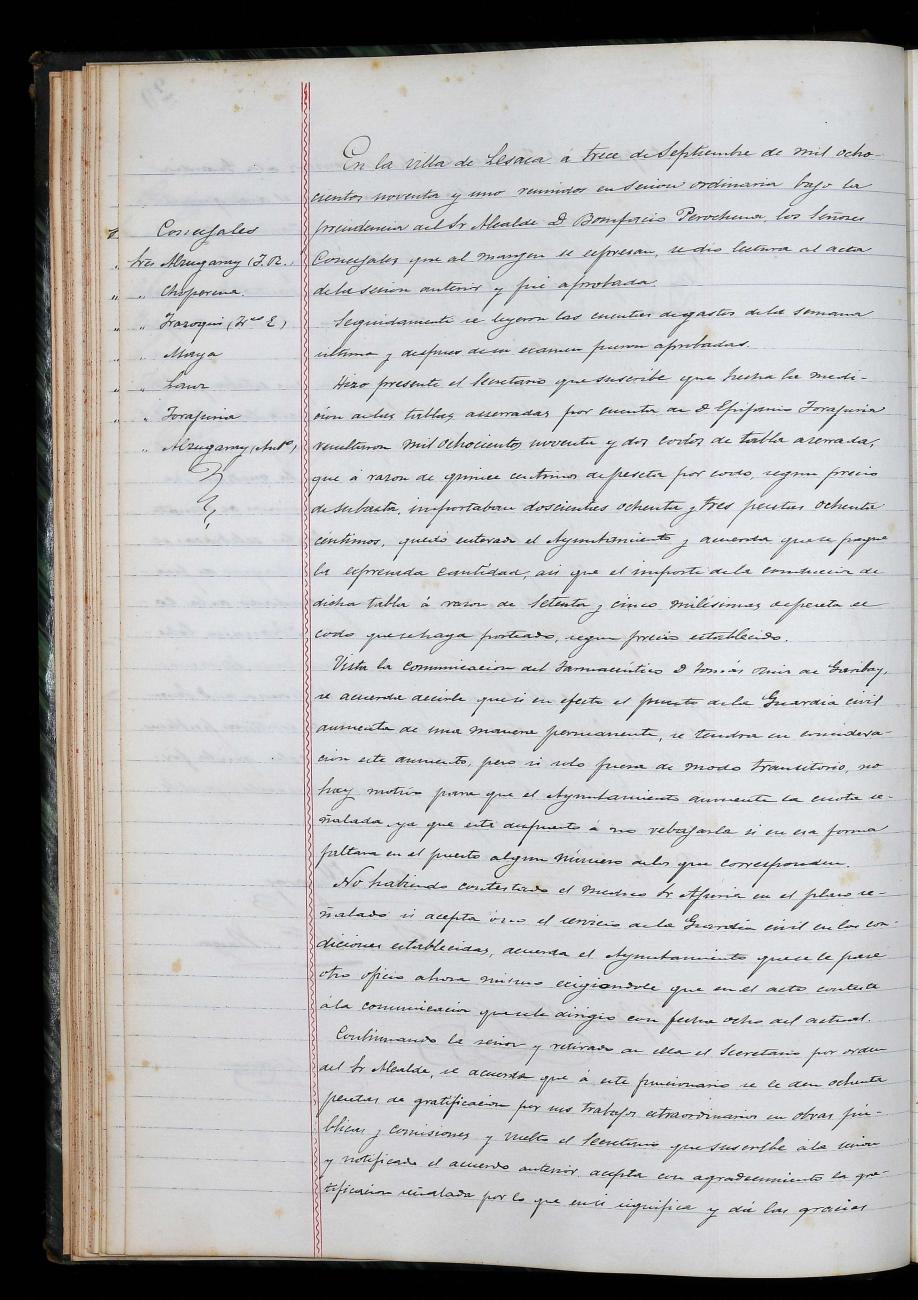 Concejales
Sres Alzugaray (J. R.
" " Choperena.
" " Irazoqui (
" " Maya
" " Lanz
" " Torajuria
" Alzugaray (Ant.º)
En la villa de Lesaca á trece de Septiembre de mil ocho-
cientos noventa y uno reunidos en sesion ordinaria bajo la
presidencia del Sr Alcalde D Bonifacio Perochena, los Señores
Concejales que al margen se espresan, se dio lectura al acta
de la sesion anterior y fué aprobada.
Seguidamente se leyeron las cuentas de gastos de la semana
última y despues de su examen fueron aprobadas.
Hizo presente el Secretario que suscribe que hecha la medi-
cion de las tablas aserradas por cuenta de D Epifanio Torajuria
resultaron mil ochocientos noventa y dos codos de tabla aserrada,
que á razon de quince centimos de peseta por codo, segun precio
de subasta, importaban doscientas ochenta y tres pesetas ochenta
centimos, quedó enterado el Ayuntamiento y acuerda que se pague
la espresada cantidad, asi que el importe de la conduccion de
dicha tabla á razon de setenta y cinco milésimas de peseta el
codo que se haya porteado, segun precio establecido.
Vista la comunicacion del Farmaceutico D Tomás Ruiz de Garibay,
se acuerda decirle que si en efecto el puesto de la Guardia civil
aumenta de una manera permanente, se tendra en considera-
cion este aumento, pero si solo fuera de modo transitorio, no
hay motivo para que el Ayuntamiento aumente la cuota se-
ñalada ya que está dispuesto á no rebajarla si en esa forma
faltara en el puesto algun número de los que corresponden.
No habiendo contestado el medico Sr Ajuria en el plazo se-
ñalado si acepta ó no el servicio de la Guardia civil en las con-
diciones establecidas, acuerda el Ayuntamiento que se le pase
otro oficio ahora mismo exigiendole que en el acto conteste
á la comunicacion que se le dirigió con fecha ocho del actual.
Continuando la sesion y retirado de ella el Secretario por orden
del Sr Alcalde, se acuerda que á este funcionario se le den ochenta
pesetas de gratificacion por sus trabajos extraordinarios en obras pú-
blicas y comisiones y vuelto el Secretario que suscribe á la sesion
y notificado el acuerdo anterior acepta con agradecimiento la gra-
tificacion señalada por lo que en si significa y dá las gracias